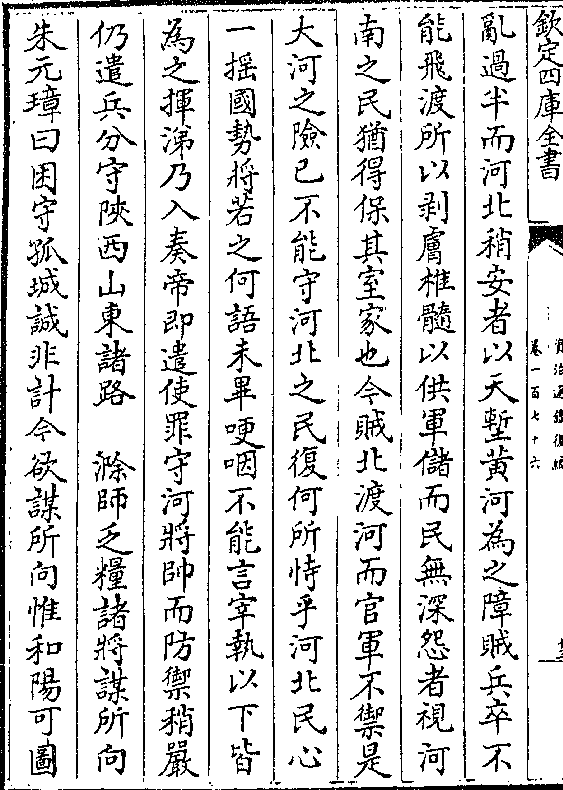 欽定四庫全書
卷一百七十六
亂過半而河北稍安者以天塹黃河為之障賊兵卒不
能飛渡所以剥膚椎髓以供軍儲而民無深怨者視河
南之民猶得保其室家也今賊北渡河而官軍不禦是
大河之險已不能守河北之民復何所恃乎河北民心
一揺國勢將若之何語未畢哽咽不能言宰執以下皆
為之揮涕乃入奏帝即遣使罪守河將帥而防禦稍嚴
仍遣兵分守陜西山東諸路　滁師乏糧諸將謀所向
朱元璋曰困守孤城誠非計今欲謀所向惟和陽可圖